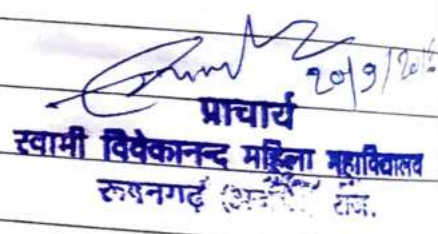 20/9/20
प्राचार्य
स्वामी विवेकानन्द महिला महाविद्यालय
रूपनगढ़ (अजमेर) राज.